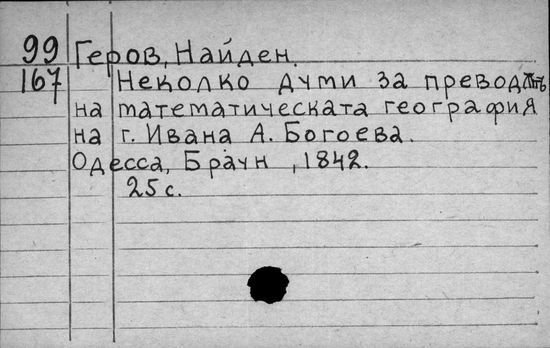 99 Геров, Найден.
167 Неколко думи за преводѫтъ
на математическата география
на г. Ивана А. Богоева.
Одесса, Браун, 1842.
25 с.